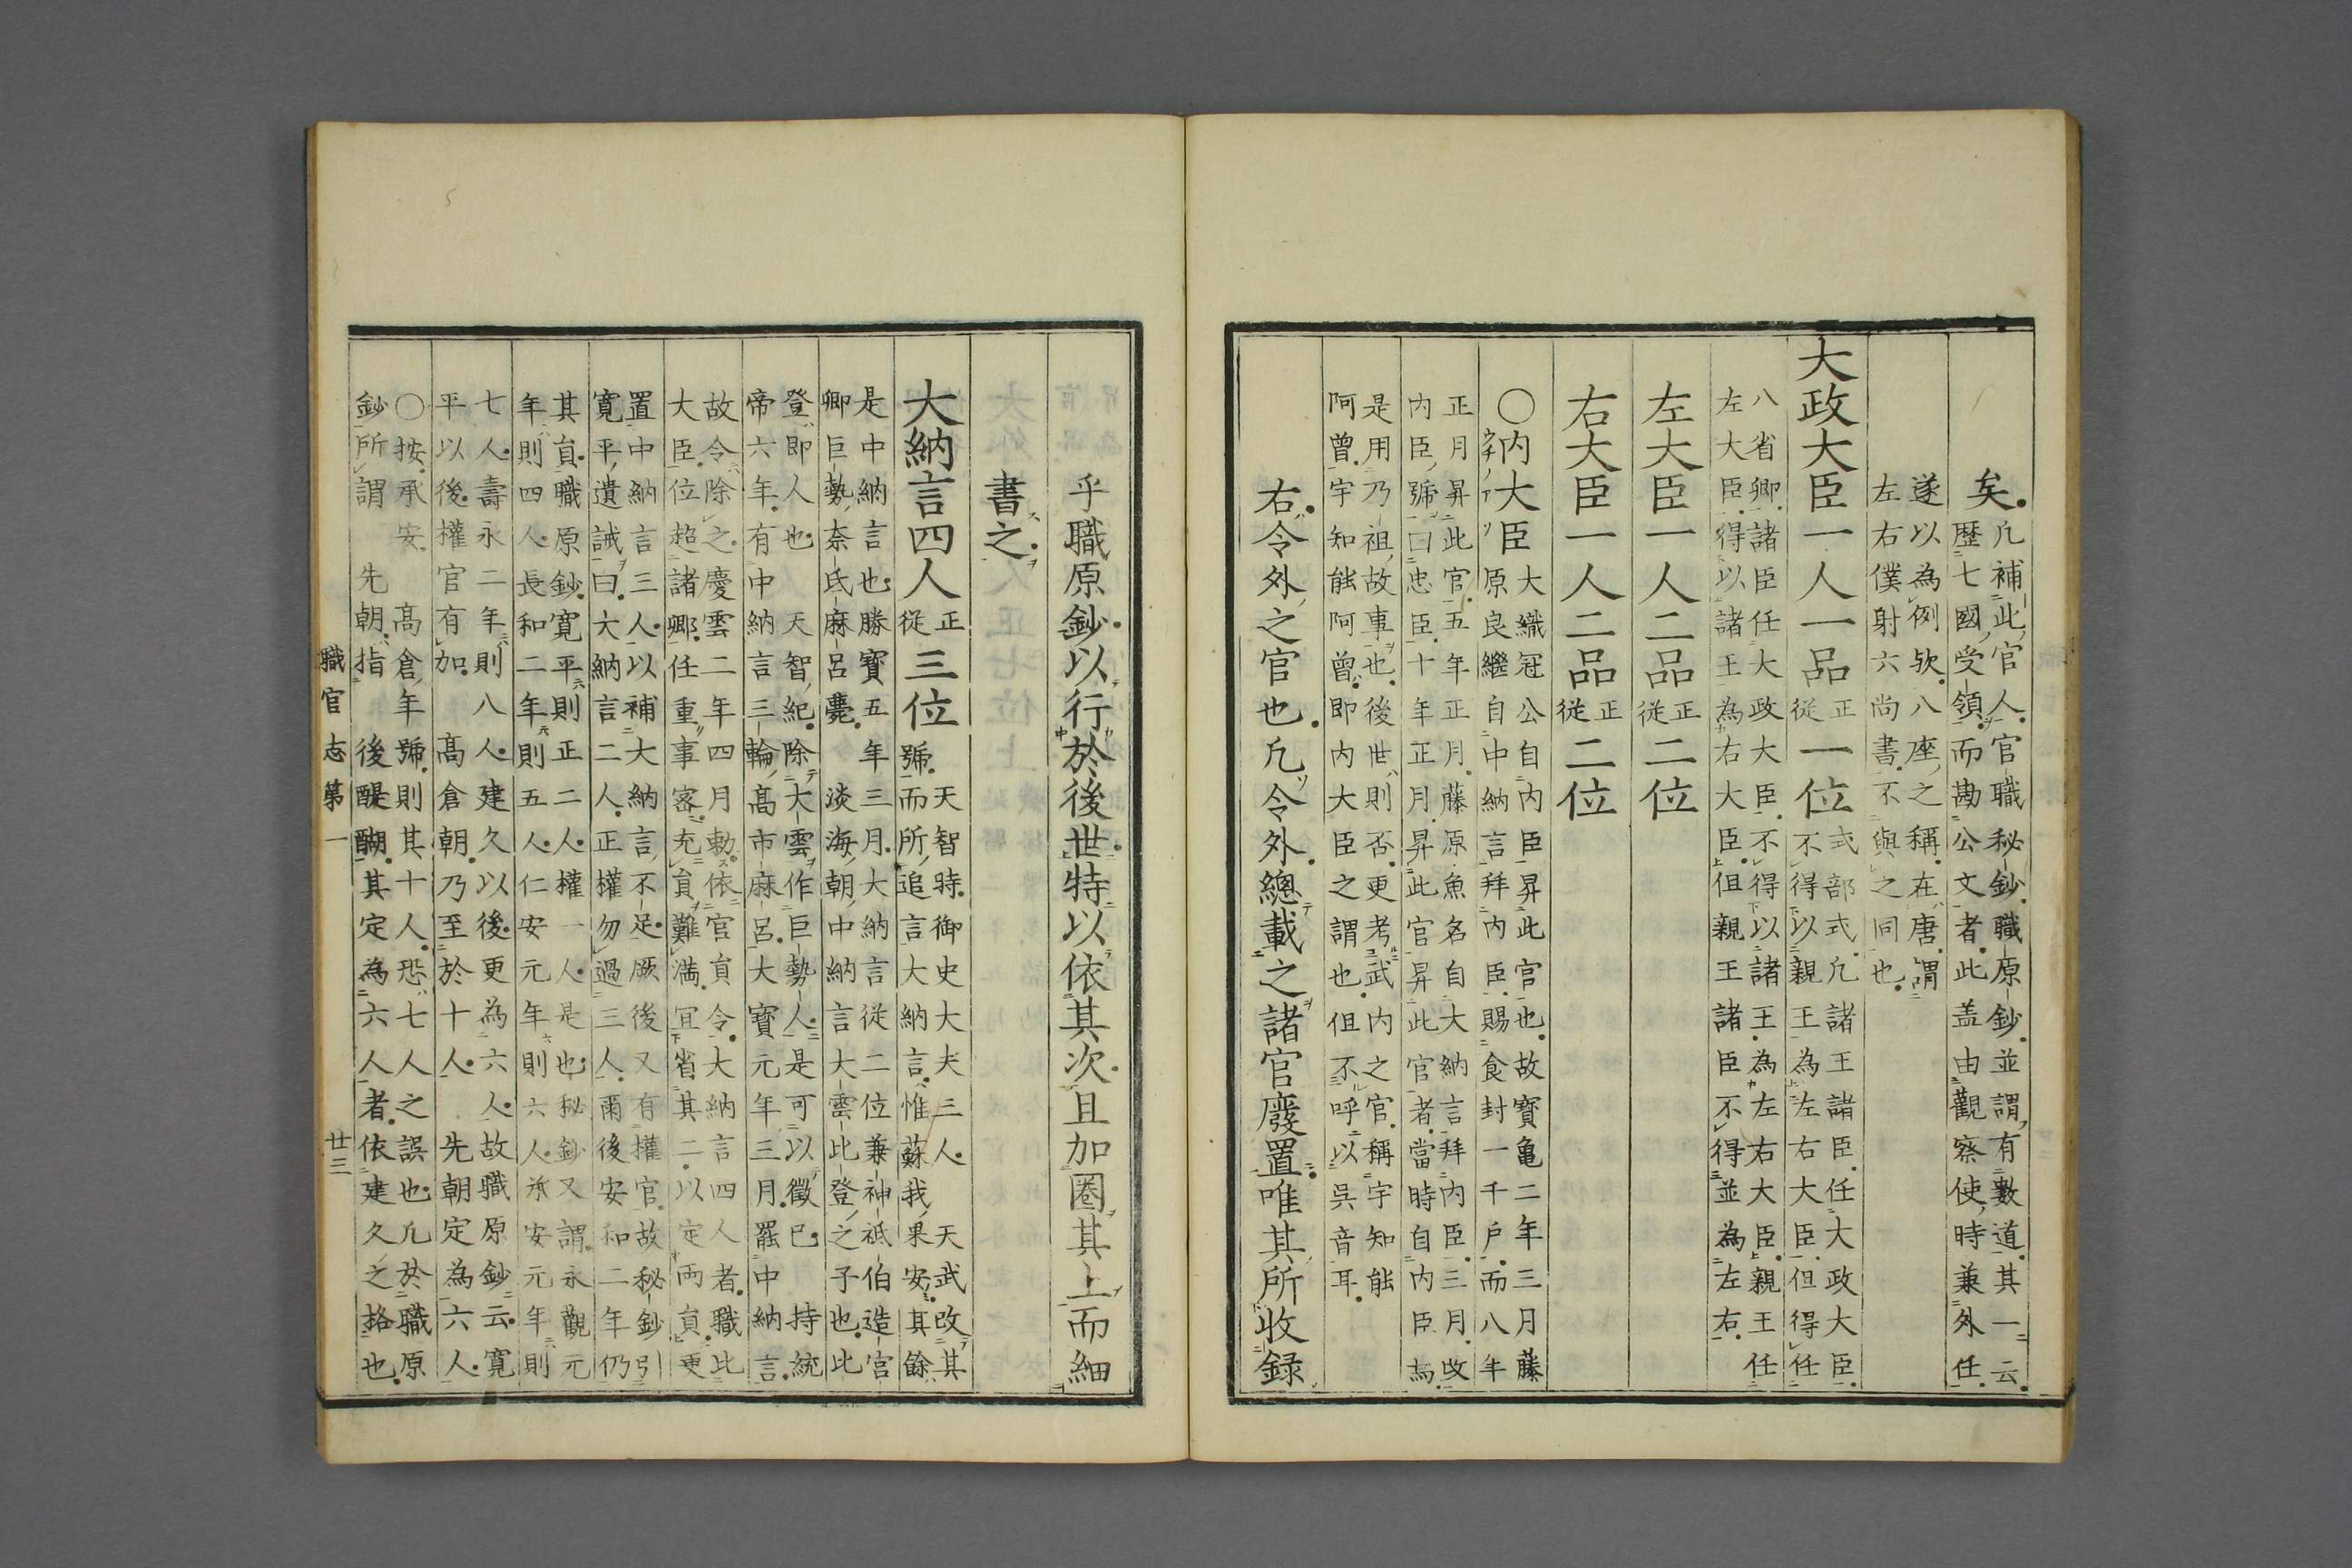 矣。凡補此官人。官職秘鈔。職原鈔。並謂有數道。其一云。
歷七國受領。而勘公文者。此盖由觀察使時兼外任。
遂以為例欤。八座之稱。在唐謂
左右僕射六尚書。不與之同也。
大政大臣一人一品正從一位式部式。凡諸王諸臣。任大政大臣。
不得以親王為左右大臣。但得任
八省卿。諸臣任大政大臣。不得以諸王。為左右大臣。親王任
左大臣。得以諸王為右大臣。但親王諸臣不得並為左右。
左大臣一人二品正從二位
右大臣一人二品正從二位
〇内大臣大織冠公自内臣昇此官也。故寶龜二年三月藤
原良繼自中納言拜内臣。賜食封一千戶。而八年
正月昇此官。五年正月。藤原魚名自大納言拜内臣。三月。改
内臣號曰忠臣。十年正月。昇此官。昇此官者。當時自内臣焉。
是用乃祖故事也。後世則否。更考武内之官。稱宇知能
阿曾。宇知能阿曾。即内大臣之謂也。但不呼以吳音耳。
右。令外之官也。凡令外。總載之諸官廢置。唯其所收録
乎職原鈔。以行於後世。特以依其次。且加圈其上而細
書之。
大納言四人正從三位號。天智時。御史大夫三人。天武改其
而所追言大納言。惟蘇我果安。其餘
是中納言也。勝寶五年三月。大納言從二位兼神祇伯造宮
卿巨勢奈氐麻呂薨。淡海朝中納言大雲比登之子也。此
登即人也。天智紀。除大雲作巨勢人。是可以徵已。持統
帝六年。有中納言三輪高市麻呂。大寶元年三月。罷中納言。
故令除之。慶雲二年四月勅。依官員令。大納言四人者。職比
大臣。位超諸卿。任重事密。充員難滿。宜省其二。以定兩員。更
置中納言三人。以補大納言不足。厥後又有權官。故秘鈔引
寛平遺誡曰。大納言二人。正權勿過三人。爾後安和二年仍
其員。職原鈔。寛平則正二人。權一人。是也。秘鈔又謂。永觀元
年則四人。長和二年則五人。仁安元年則六人。承安元年則
七人。壽永二年則八人。建久以後。更為六人。故職原鈔云。寛
平以後。權官有加。高倉朝。乃至於十人。先朝定為六人。
〇按。承安。高倉年號。則其十人。恐七人之誤也。凡於職原
鈔所謂先朝。指後醍醐。其定為六人者。依建久之格也。
職官志第一
廿三